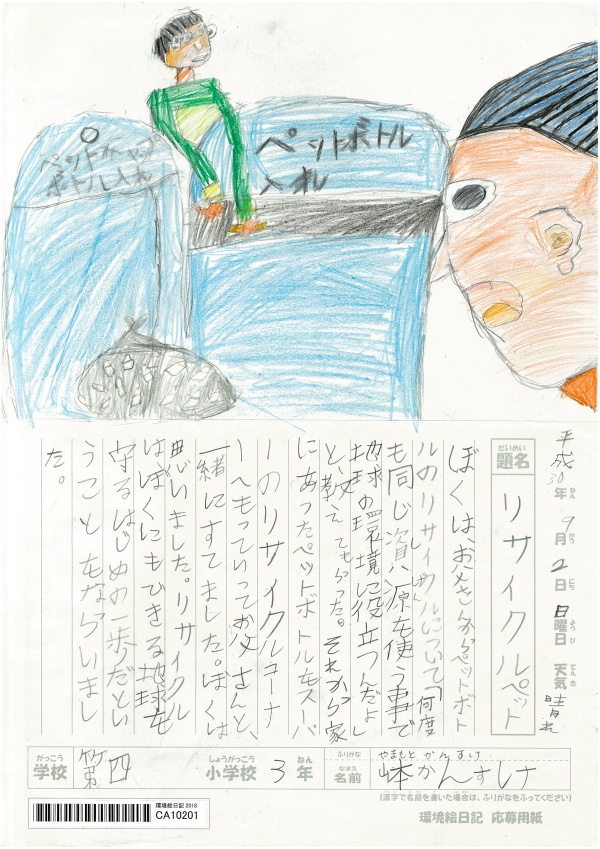 ペットキャップ
ボトル入れ
ペットボトル
入れ
平成30年9月2日日曜日天気晴れ
ねん がつ にち ようび てんき
だいめい
題名 リサイクルペット
ぼくは、お父さんからペットボト
ルのリサイクルについて「何度
も同じ資源を使う事で
地球の環境に役立つんだよ」
と、教えてもらった。それから家
にあったペットボトルをスーパ
ーのリサイクルコーナ
ーへもっていってお父さんと、
一緒にすてました。ぼくは
思いました。リサイクル
はぼくにもできる地球を
守るはじめの一歩だとい
うことをならいまし
た。
がっこう しょうがっこう ねん ふりがな やまもと かんすけ
学校 第四 小学校 3年 名前 山本かんすけ
なまえ
(漢字で名前を書いた場合は、ふりがなをふってください)
環境絵日記 2018
CA10201
環境絵日記 応募用紙